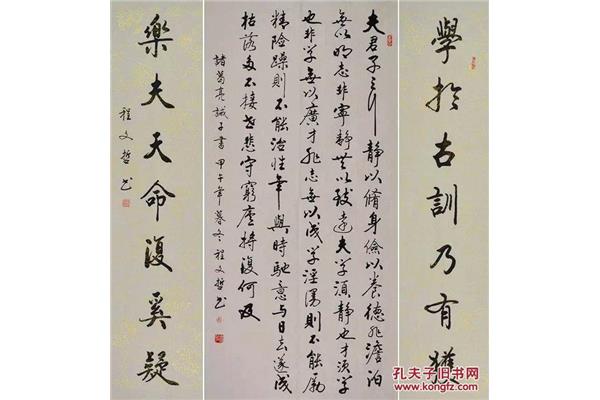 學於古訓乃有獲
夫君子之行静以脩身儉以養德非澹泊
無以明志非寧静无以致遠夫学須静也才须学
也非学無以廣才非志無以成学淫漫則不能励
精險躁則不能治性年與時馳意与日去遂成
枯落多不接世悲守窮廬將復何及
諸葛亮誡子書 甲午年暮冬程文哲书
樂夫天命復奚疑
程文哲书
孔夫子旧书网